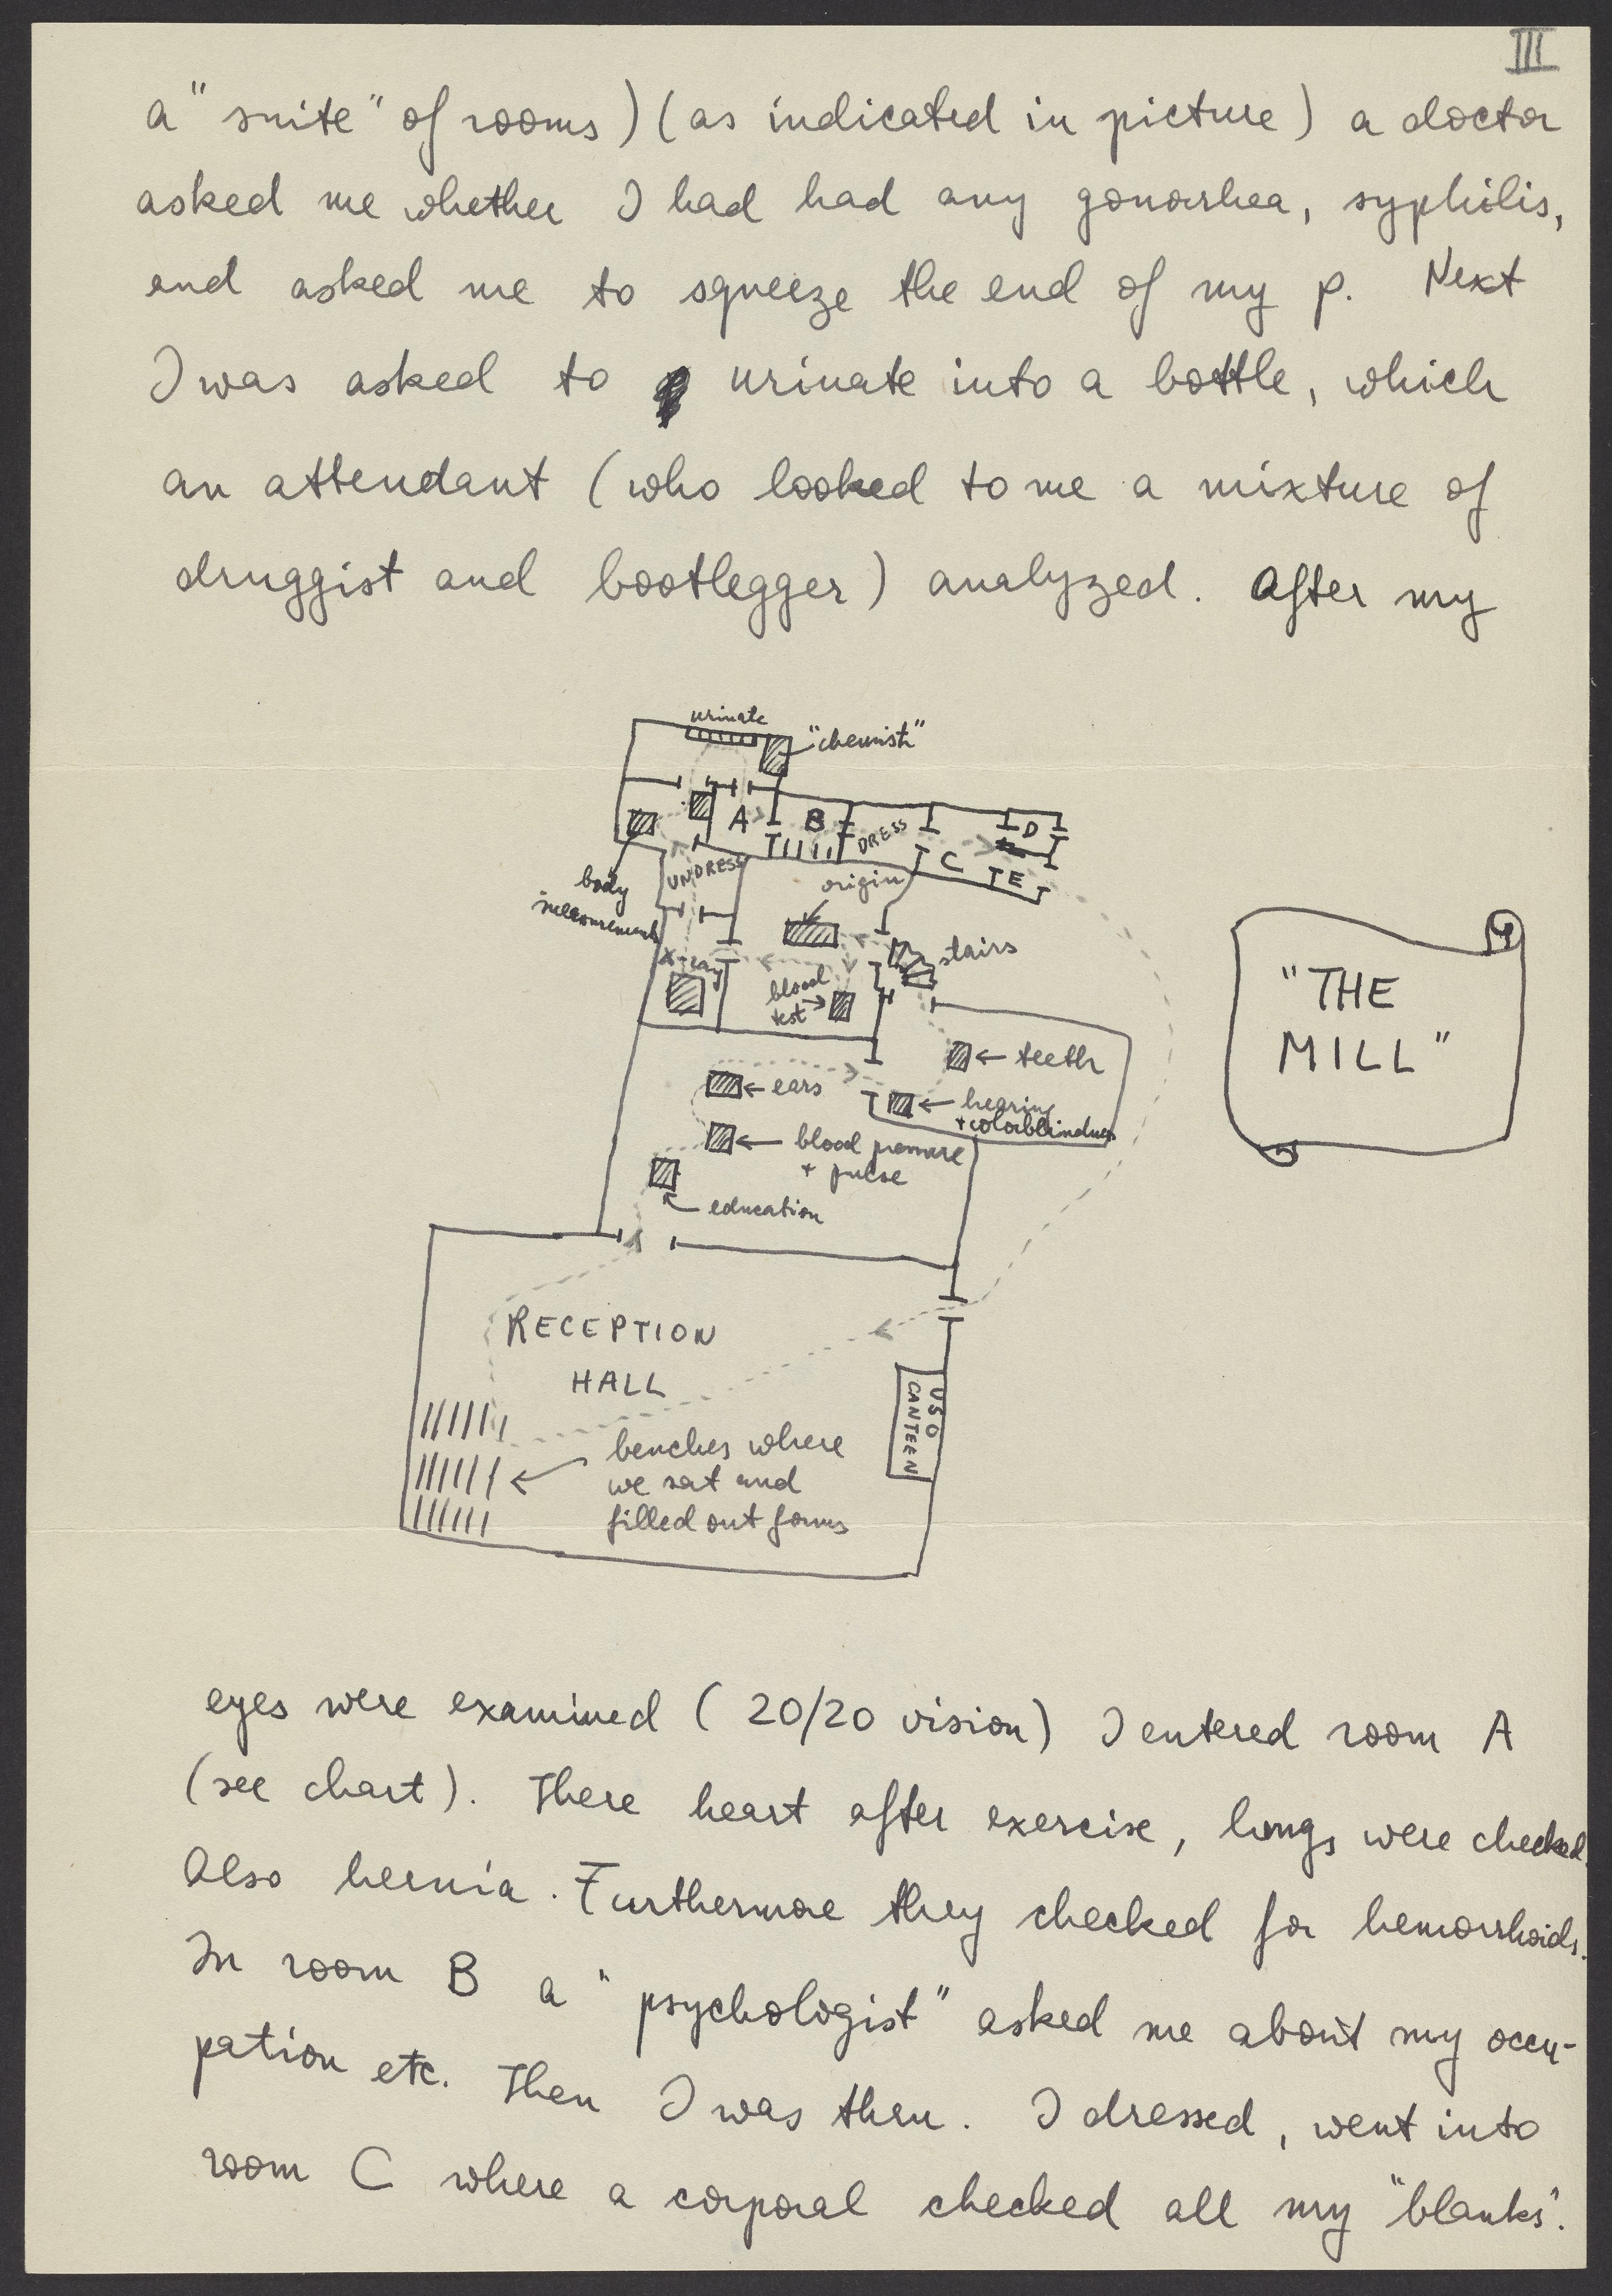 III
a "suite" of rooms) (as indicated in picture) a doctor
asked me whether I had had any gonorrhea, syphilis,
and asked me to squeeze the end of my p. Next
I was asked to urinate into a bottle, which
an attendant (who looked to me a mixture of
druggist and bootlegger) analyzed. After my
urinate
"chemist"
A
B
DRESS
D
C
E
UNDRESS
body
measurement
origin
X-ray
stairs
blood
test
teeth
ears
hearing
+ colorblindness
blood pressure
+ pulse
education
"THE
MILL"
RECEPTION
HALL
USO
CANTEEN
benches where
we sat and
filled out forms
eyes were examined (20/20 vision) I entered room A
(see chart). There heart after exercise, lungs were checked.
Also hernia. Furthermore they checked for hemorrhoids.
In room B a "psychologist" asked me about my occu-
pation etc. Then I was thru. I dressed, went into
room C where a corporal checked all my "blanks".